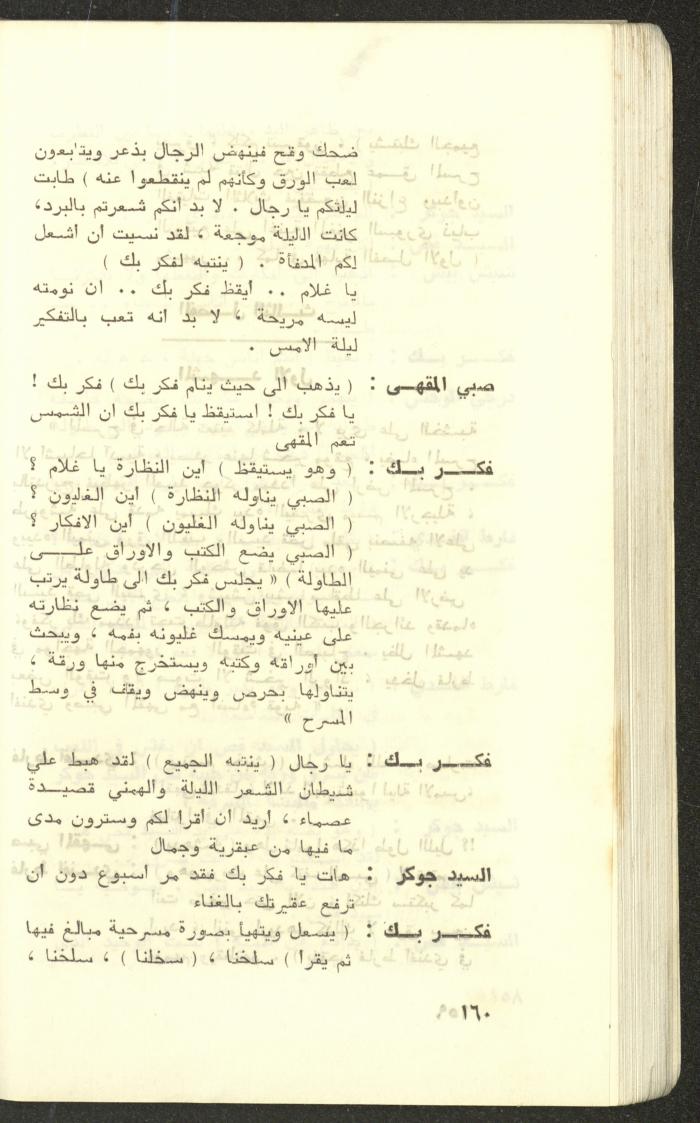 ضحك وقح فينهض الرجال بذعر ويتابعون
لعب الورق وكأنهم لم ينقطعوا عنه ) طابت
ليلتكم يا رجال . لا بد انكم شعرتم بالبرد،
كانت الليلة موجعة ، لقد نسيت ان اشعل
لكم المدفأة . ( ينتبه لفكر بك )
يا غلام .. ايقظ فكر بك .. ان نومته
ليسه مريحة ، لا بد انه تعب بالتفكير
ليلة الامس .
صبي المقهى : ( يذهب الى حيث ينام فكر بك ) فكر بك !
يا فكر بك ! استيقظ يا فكر بك ان الشمس
تعم المقهى
فكر بك : ( وهو يستيقظ ) اين النظارة يا غلام ؟
( الصبي يناوله النظارة ) اين الغليون ؟
( الصبي يناوله الغليون ) اين الافكار ؟
( الصبي يضع الكتب والاوراق على
الطاولة ) « يجلس فكر بك الى طاولة يرتب
عليها الاوراق والكتب ، ثم يضع نظارته
على عينيه ويمسك غليونه بفمه ، ويبحث
بين اوراقه وكتبه ويستخرج منها ورقة ،
يتناولها بحرص وينهض ويقف في وسط
المسرح »
فكر بك : يا رجال ( ينتبه الجميع ) لقد هبط علي
شيطان الشعر الليلة والهمني قصيدة
عصماء ، اريد ان اقرا لكم وسترون مدى
ما فيها من عبقرية وجمال
السيد جوكر : هات يا فكر بك فقد مر اسبوع دون ان
ترفع عقيرتك بالغناء
فكر بك : ( يسعل ويتهيأ بصورة مسرحية مبالغ فيها
ثم يقرا ) سلخنا ، ( سخلنا ) ، سلخنا ،
١٦٠